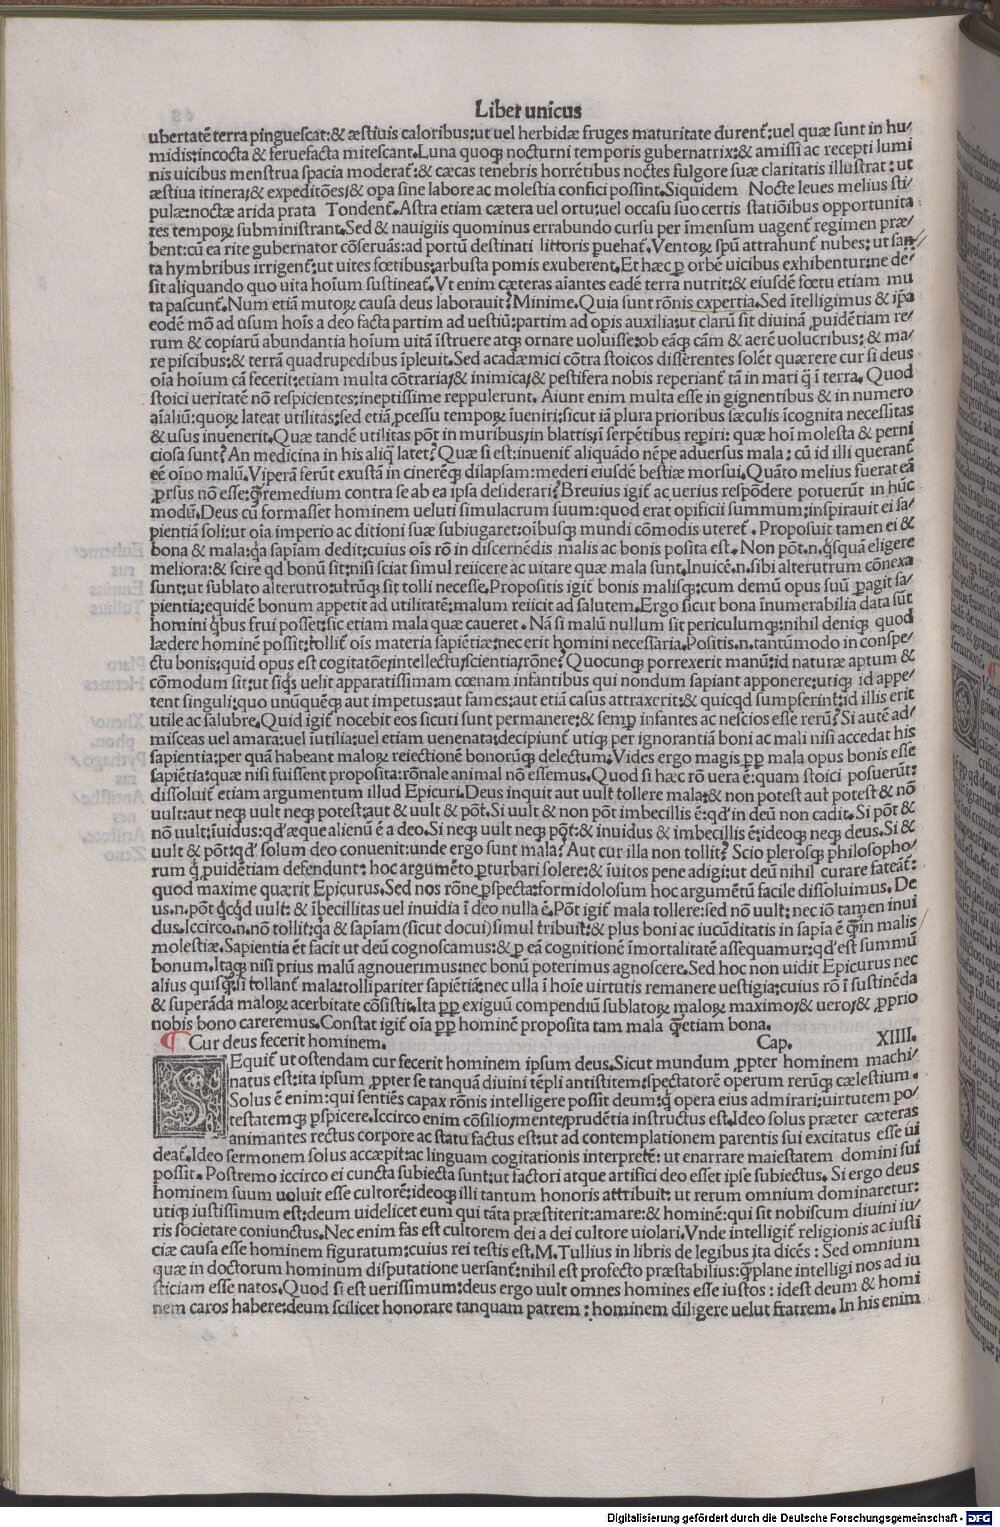 Liber unicus
ubertatē terra pinguescat:& æstiuis caloribus:ut uel herbidæ fruges maturitate durent᷑:uel quæ sunt in hu/
midis:incocta & feruefacta mitescant.Luna quoqꝫ nocturni temporis gubernatrix:& amissi ac recepti lumi
nis uicibus menstrua spacia moderat᷑:& cæcas tenebris horrētibus noctes fulgore suæ claritatis illustrat:ut
æstiua itinera/& expeditōes/& oꝑa sine labore ac molestia confici possint.Siquidem Nocte leues melius sti/
pulæ:noctæ arida prata Tondent᷑.Astra etiam cætera uel ortu:uel occasu suo certis statiōibus opportunita
tes tempoꝝ subministrant.Sed & nauigiis quominus errabundo cursu per īmensum uagent᷑ regimen præ/
bent:cū ea rite gubernator cōseruās:ad portū destinati littoris puehat᷑.Ventoꝝ spū attrahunt᷑ nubes:ut san/
ta hymbribus irrigent᷑:ut uites fœtibus:arbusta pomis exuberent.Et hæc ꝑ orbē uicibus exhibentur:ne de/
sit aliquando quo uita hoium sustineat᷑.Vt enim cæteras aīantes eadē terra nutrit:& eiusdē fœtu etiam mu
ta pascunt᷑.Num etiā mutoꝝ causa deus laborauit?Minime.Quia sunt rōnis expertia.Sed ītelligimus & ip̄a
eodē mō ad usum hoīs a deo facta partim ad uestiū:partim ad opis auxilia:ut clarū sit diuinā ꝓuidētiam re/
rum & copiarū abundantia hoīum uitā īstruere atqꝫ ornare uoluisse:ob eāqꝫ cām & aerē uolucribus:& ma/
re piscibus:& terrā quadrupedibus īpleuit.Sed academici cōtra stoicos disserentes solēt quærere cur si deus
oīa hoīum cā fecerit:etiam multa cōtraria/& inimica/& pestifera nobis reperiant᷑ tā in mari q̄ ī terra.Quod
stoici ueritatē nō respicientes:ineptissime reppulerunt.Aiunt enim multa esse in gignentibus & in numero
aīaliū:quoꝝ lateat utilitas:sed etiā ꝓcessu tempoꝝ īueniri:sicut iā plura prioribus sæculis īcognita necessitas
& usus inuenerit.Quæ tandē utilitas pōt in muribus/in blattis/ī serpētibus reꝑiri:quæ hoī molesta & perni
ciosa sunt?An medicina in his aliq̄ latet?Quæ si est:inuenit᷑ aliquādo nēpe aduersus mala:cū id illi querant᷑
eē oīno malū.Viperā ferūt exustā in cinerēqꝫ dilapsam:mederi eiusdē bestiæ morsui.Quāto melius fuerat eā
ꝓrsus nō esse:q̄ꝫ remedium contra se ab ea ipsa desiderari?Breuius igit᷑ ac uerius respōdere potuerūt in hūc
modū.Deus cū formasset hominem ueluti simulacrum suum:quod erat opificii summum:inspirauit ei sa/
pientiā soli:ut oīa imperio ac ditioni suæ subiugaret:oībusqꝫ mundi cōmodis uteret᷑.Proposuit tamen ei &
bona & mala:q̄a sapīam dedit:cuius oīs rō in discernēdis malis ac bonis posita est.Non pōt.n.q̄squā eligere
meliora:& scire qd bonū sit:nisi sciat simul reiicere ac uitare quæ mala sunt.Inuicē.n.sibi alterutrum cōnexa
sunt:ut sublato alterutro:utrūqꝫ sit tolli necesse.Propositis igit᷑ bonis malisqꝫ:cum demū opus suū ꝑagit sa/
pientia:equidē bonum appetit ad utilitatē:malum reiicit ad salutem.Ergo sicut bona īnumerabilia data sūt
homini q̄bus frui posset:sic etiam mala quæ caueret.Nā si malū nullum sit periculumqꝫ:nihil deniqꝫ quod
lædere hominē possit:tollit᷑ oīs materia sapiētiæ:nec erit homini necessaria.Positis.n.tantūmodo in conspe/
ctu bonis:quid opus est cogitatōe/intellectu/scientia/rōne?Quocunqꝫ porrexerit manū:id naturæ aptum &
cōmodum sit:ut siq̄s uelit apparatissimam cœnam infantibus qui nondum sapiant apponere:utiqꝫ id appe/
tent singuli:quo unūquēqꝫ aut impetus:aut fames:aut etiā casus attraxerit:& quicqd sumpserint:id illis erit
utile ac salubre.Quid igit᷑ nocebit eos sicuti sunt permanere:& semꝑ infantes ac nescios esse rerū?Si autē ad/
misceas uel amara:uel iutilia:uel etiam uenenata:decipiunt᷑ utiqꝫ per ignorantiā boni ac mali nisi accedat his
sapientia:per quā habeant maloꝝ reiectionē bonorūqꝫ delectum.Vides ergo magis ꝑꝑ mala opus bonis esse
sapiētia:quæ nisi fuissent proposita:rōnale animal nō essemus.Quod si hæc rō uera ē:quam stoici posuerūt:
dissoluit᷑ etiam argumentum illud Epicuri.Deus inquit aut uult tollere mala:& non potest aut potest & nō
uult:aut neqꝫ uult neqꝫ potest:aut & uult & pōt.Si uult & non pōt imbecillis ē:qd' in deū non cadit.Si pōt &
nō uult:īuidus:qd' æque alienū ē a deo.Si neqꝫ uult neqꝫ pōt:& inuidus & imbecillis ē:ideoqꝫ neqꝫ deus.Si &
uult & pōt:qd' solum deo conuenit:unde ergo sunt mala?Aut cur illa non tollit?Scio plerosqꝫ philosopho/
rum q̄ ꝓuidētiam defendunt:hoc argumēto ꝑturbari solere:& īuitos pene adigi:ut deū nihil curare fateāt᷑:
quod maxime quærit Epicurus.Sed nos rōne ꝑspecta:formidolosum hoc argumētū facile dissoluimus.De
us.n.pōt q̄cqd uult:& ībecillitas uel inuidia ī deo nulla ē.Pōt igit᷑ mala tollere:sed nō uult:nec iō tamen inui
dus.Iccirco.n.nō tollit:q̄a & sapīam (sicut docui)simul tribuit:& plus boni ac iucūditatis in sapīa ē q̄ꝫ in malis
molestiæ.Sapientia ēt facit ut deū cognoscamus:& ꝑ eā cognitionē īmortalitatē assequamur:qd' est summū
bonum.Itaqꝫ nisi prius malū agnouerimus:nec bonū poterimus agnoscere.Sed hoc non uidit Epicurus nec
alius quisqꝫ:si tollant᷑ mala:tolli pariter sapiētiā:nec ulla ī hoīe uirtutis remanere uestigia:cuius rō ī sustinēda
& superāda maloꝝ acerbitate cōsistit.Ita ꝑꝑ exiguū compendiū sublatoꝝ maloꝝ maximo/& uero/& ꝓprio
nobis bono careremus.Constat igit᷑ oīa ꝑꝑ hominē proposita tam mala q̄ꝫ etiam bona.
¶ Cur deus fecerit hominem. Cap. XIIII.
SEquit᷑ ut ostendam cur fecerit hominem ipsum deus.Sicut mundum ꝓpter hominem machi/
natus est:ita ipsum ꝓpter se tanquā diuini tēpli antistitem:spectatorē operum rerūqꝫ cælestium.
Solus ē enim:qui sentiēs capax rōnis intelligere possit deum:q̄ opera eius admirari:uirtutem po/
testatemqꝫ ꝑspicere.Iccirco enim cōsilio/mente/prudētia instructus est.Ideo solus præter cæteras
animantes rectus corpore ac statu factus est:ut ad contemplationem parentis sui excitatus esse ui
deat᷑.Ideo sermonem solus accæpit:ac linguam cogitationis interpretē:ut enarrare maiestatem domini sui
possit.Postremo iccirco ei cuncta subiecta sunt:ut factori atque artifici deo esset ipse subiectus.Si ergo deus
hominem suum uoluit esse cultorē:ideoqꝫ illi tantum honoris attribuit:ut rerum omnium dominaretur:
utiqꝫ iustissimum est:deum uidelicet eum qui tāta præstiterit:amare:& hominē:qui sit nobiscum diuini iu/
ris societate coniunctus.Nec enim fas est cultorem dei a dei cultore uiolari.Vnde intelligit᷑ religionis ac iusti
ciæ causa esse hominem figuratum:cuius rei testis est.M.Tullius in libris de legibus ita dicēs:Sed omnium
quæ in doctorum hominum disputatione uersant᷑:nihil est profecto præstabilius:q̄ꝫ plane intelligi nos ad iu
sticiam esse natos.Quod si est uerissimum:deus ergo uult omnes homines esse iustos:idest deum & homi
nem caros habere:deum scilicet honorare tanquam patrem:hominem diligere uelut fratrem.In his enim
Digitalisierung gefördert durch die Deutsche Forschungsgemeinschaft - DFG